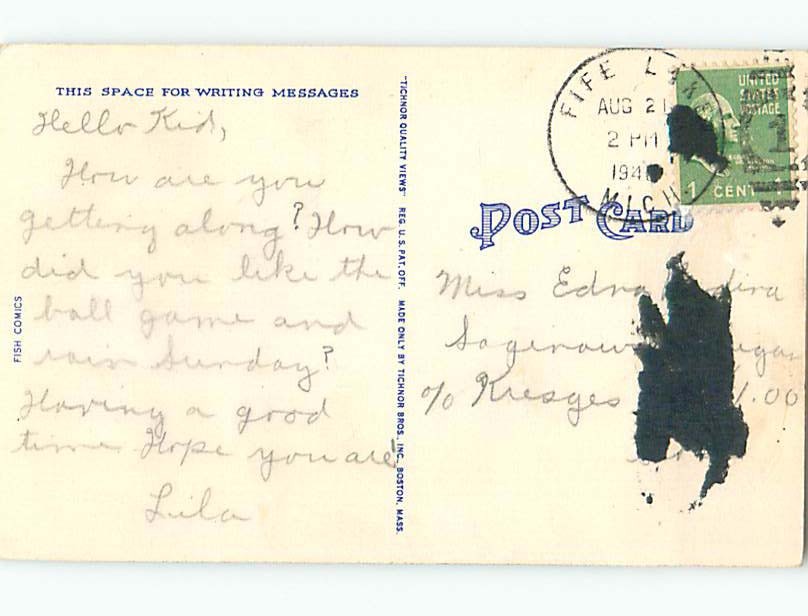 THIS SPACE FOR WRITING MESSAGES
Hello Kid,
How are you
getting along? How
did you like the
ball game and
rain Sunday?
Having a good
time Hope you are
Lila
FISH COMICS
"TICHNOR QUALITY VIEWS" REG. U.S. PAT. OFF. MADE ONLY BY TICHNOR BROS., INC., BOSTON, MASS.
FIFE LAKE
AUG 21
2 PM
MICH
UNITED
STATES
POSTAGE
1 CENT
POST CARD
Miss Edna
Saginaw
c/o Kresges 1.00